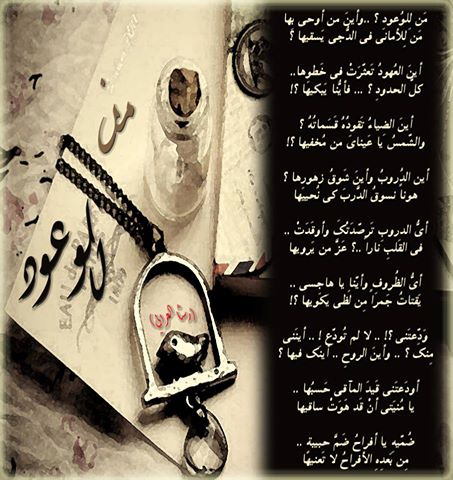 مَن للوُعود ؟ ..وأينَ من أوحى بها
مَن للأمانى فى الدُّجى يَسقيها ؟
أينَ العُهودُ تَعثَرَتْ فى خَطوها..
كلُ الحدودِ ؟ ... فأيُّنا يَبكيها ؟!
أينَ الضياءُ تَقودُهُ قَسَماتُهُ ؟
والشَّمسُ يا عيناىَ من مُخفيها ؟!
أين الدُروبُ وأينَ شوقُ زهورها ؟
هوناً نسوقُ الدربَ كى نُحييها
أىُّ الدروبِ تَرصّدَتْكَ وأوقدَتْ ..
فى القلبِ ناراً ..؟ عَزَّ من يَرويها
أىُّ الظُروفِ وأيّنا يا هاجِسى ..
يقتاتُ جَمراً مِن لظى يَكويها ؟!
وَدّعتَنى ؟! .. لا لم تُودّع ! .. أيتنَى
مِنكَ ؟ .. وأينَ الروحِ .. أينكَ فيها ؟
أودَعتَنى قَيدَ المآقى حَسبُها ..
يا مُنيَتى أنْ قَد هوَتْ ساقيها
ضُمّيه يا أفراحُ ضمَّ حبيبةٍ ..
مِن بَعدِهِ الأفراحُ لا تَعنيها
من
للوعود
(رشا العربي)